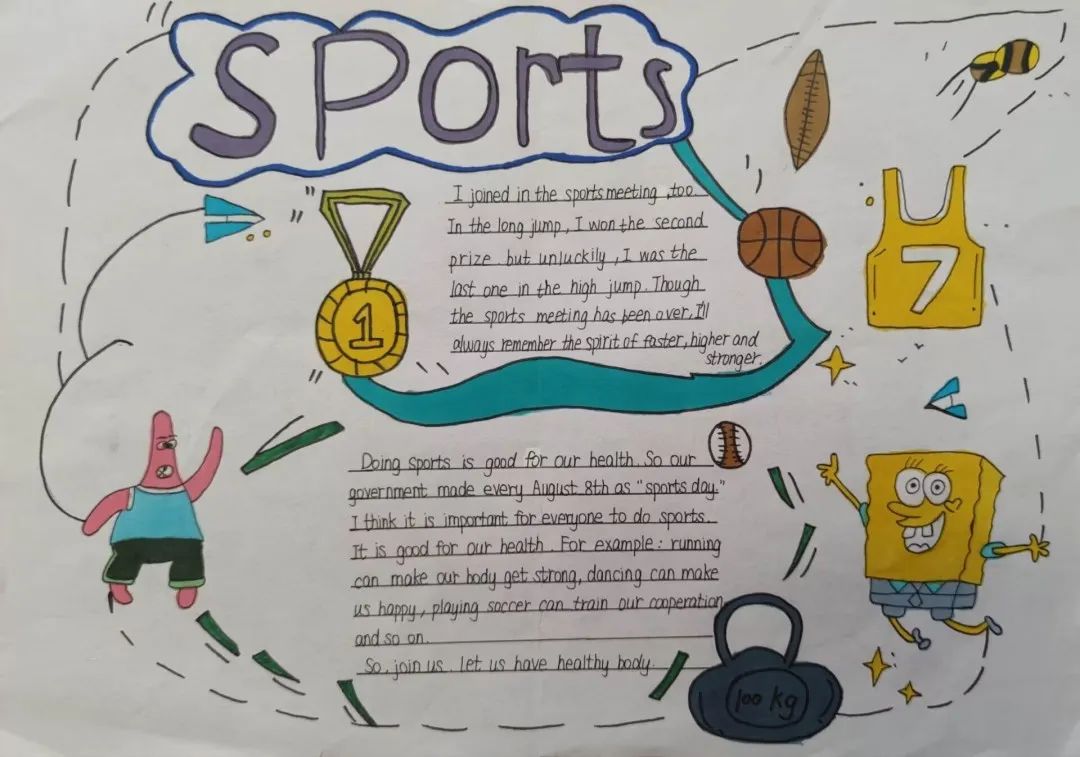 SPorts
I joined in the sports meeting, too.
In the long jump, I won the second
prize. but unluckily, I was the
last one in the high jump. Though
the sports meeting has been over, I'll
always remember the spirit of faster, higher and
stronger.
1
7
Doing sports is good for our health. So our
government made every August 8th as "sports day."
I think it is important for everyone to do sports.
It is good for our health. For example: running
can make our body get strong, dancing can make
us happy, playing soccer can train our cooperation
and so on.
So, join us. let us have healthy body.
100 kg